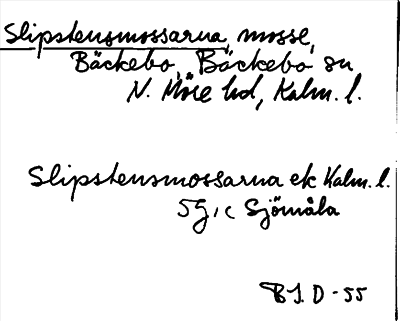 Slipstensmossarna, mosse,
Bäckebo, Bäckebo sn
N. Möre hd, Kalm. l.
Slipstensmossarna ek Kalm. l.
5g, c Sjömåla
BJ. D-55